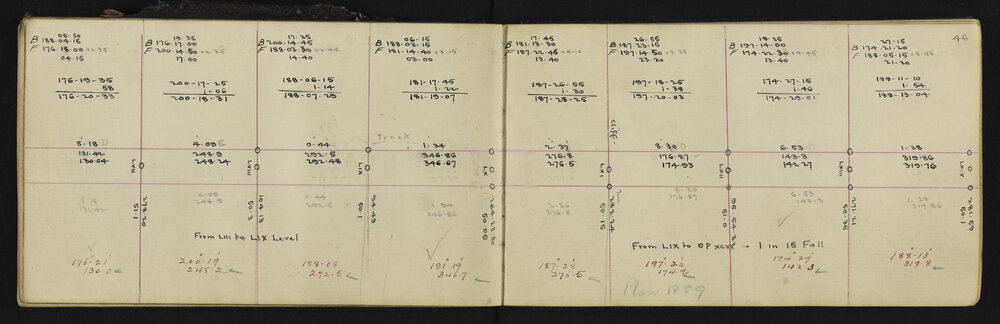 05.50
B 188.04.15
F 176.18.00 +1.35
04.15
176-19-35
58
176-20-33
8.18 D
131.42
130.04
LVII
1.15
131.42
176.21
130.0
19.35
B 176.17.00
F 200.14.50 +2.35
17.00
200-17-25
1-06
200-18-31
4.09 E
248.9
248.24
LVIII
4.00
248.9
200.19
248.2
17.25
B 200.14.45
F 188.03.30 +2.45
14.40
188-06-15
1-14
188-07-29
0.44
292.5
292.48
LIX
0.44
292.5
From LIII to LIX Level
188.08
292.5
06-15
B 188.03.15
F 181.14.40 +3.15
03.00
181-17-45
1-22
181-19-07
Track
1.34
346.86
346.67
LX
1.34
346.86
181.19
346.7
17.45
B 181.13.30
F 187.22.45 +4.10
13.40
187-26-55
1-30
187-28-25
2.37
276.8
276.5
LXI
Cliff
2.36
276.8
187.28
276.5
26.55
B 187.23.15
F 197.14.50 +3.35
23.20
197-18-25
1-38
197-20-03
8.30 D
176.87
174.93
LXII
8.30
176.87
From LIX to BP xcvi - 1 in 15 Fall
197.20
174.9
Plan 1889
18.25
B 197.14.00
F 174.22.30 +4.45
13.40
174-27-15
1-46
174-29-01
6.53
143.3
142.27
LXIII
6.53
143.3
174.29
142.3
46
27.15
B 174.21.20
F 188.05.15 +5.55
21.20
188-11-10
1-54
188-13-04
1.28
319.86
319.76
1.28
319.86
188.13
319.8